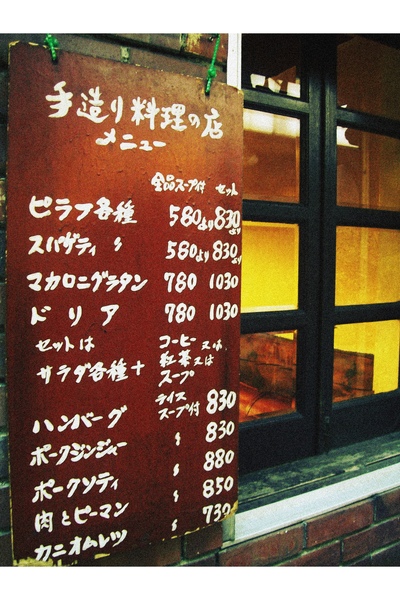 手造り料理の店
メニュー
全品スープ付 セット
ピラフ各種 580より 830より
スパゲティ 〃 580より 830より
マカロニグラタン 780 1030
ドリア 780 1030
セットは コーヒー又は、
サラダ各種+ 紅茶又は
スープ
ライス
スープ付 830
ハンバーグ 〃 830
ポークジンジャー 〃 880
ポークソティ 〃 850
肉とピーマン 〃 730
カニオムレツ